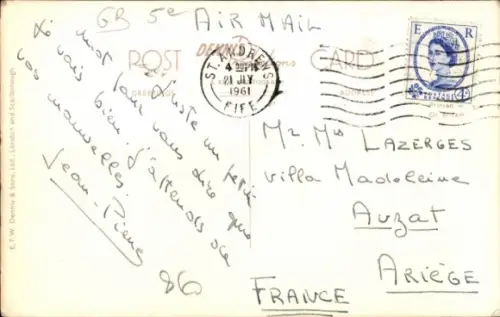 GB 5e
AIR MAIL
POST CARD
DENNIS
ST. ANDREWS
4 PM
21 JLY
1961
FIFE
E R
POSTAGE
ADDRESS
Juste un petit
mot pour vous dire que
je vais bien. J'attends de
vos nouvelles.
Jean-Pierre
86
Mr Ms LAZERGES
Villa Madeleine
Auzat
ARIÈGE
FRANCE
E.T.W. Dennis & Sons, Ltd., London and Scarborough.